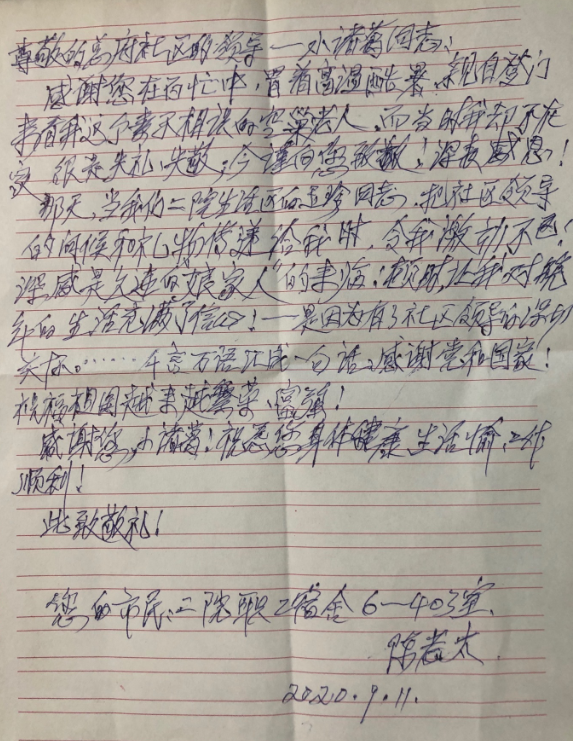 尊敬的总府社区的领导——小诸葛同志:
感谢您在百忙中,冒着高温酷暑,亲自登门
来看我这个素不相识的空巢老人,而当时我却不在
家,很是失礼、失敬;今谨向您致敬!深表感恩!
那天,当我们二院生活区的同志,把社区领导
的问候和礼物传递给我时,令我激动不已!
深感是久违的“娘家人”的来临;顿时让我对晚
年的生活充满了信心!——是因为有了社区领导的深切
关怀。……千言万语汇成一句话:感谢党和国家!
祝福祖国越来越繁荣、富强!
感谢您,小诸葛!祝愿您身体健康,生活愉,工作
顺利!
此致敬礼!
您的市民:二院职工宿舍6—403室
陈老太
2020.9.11.